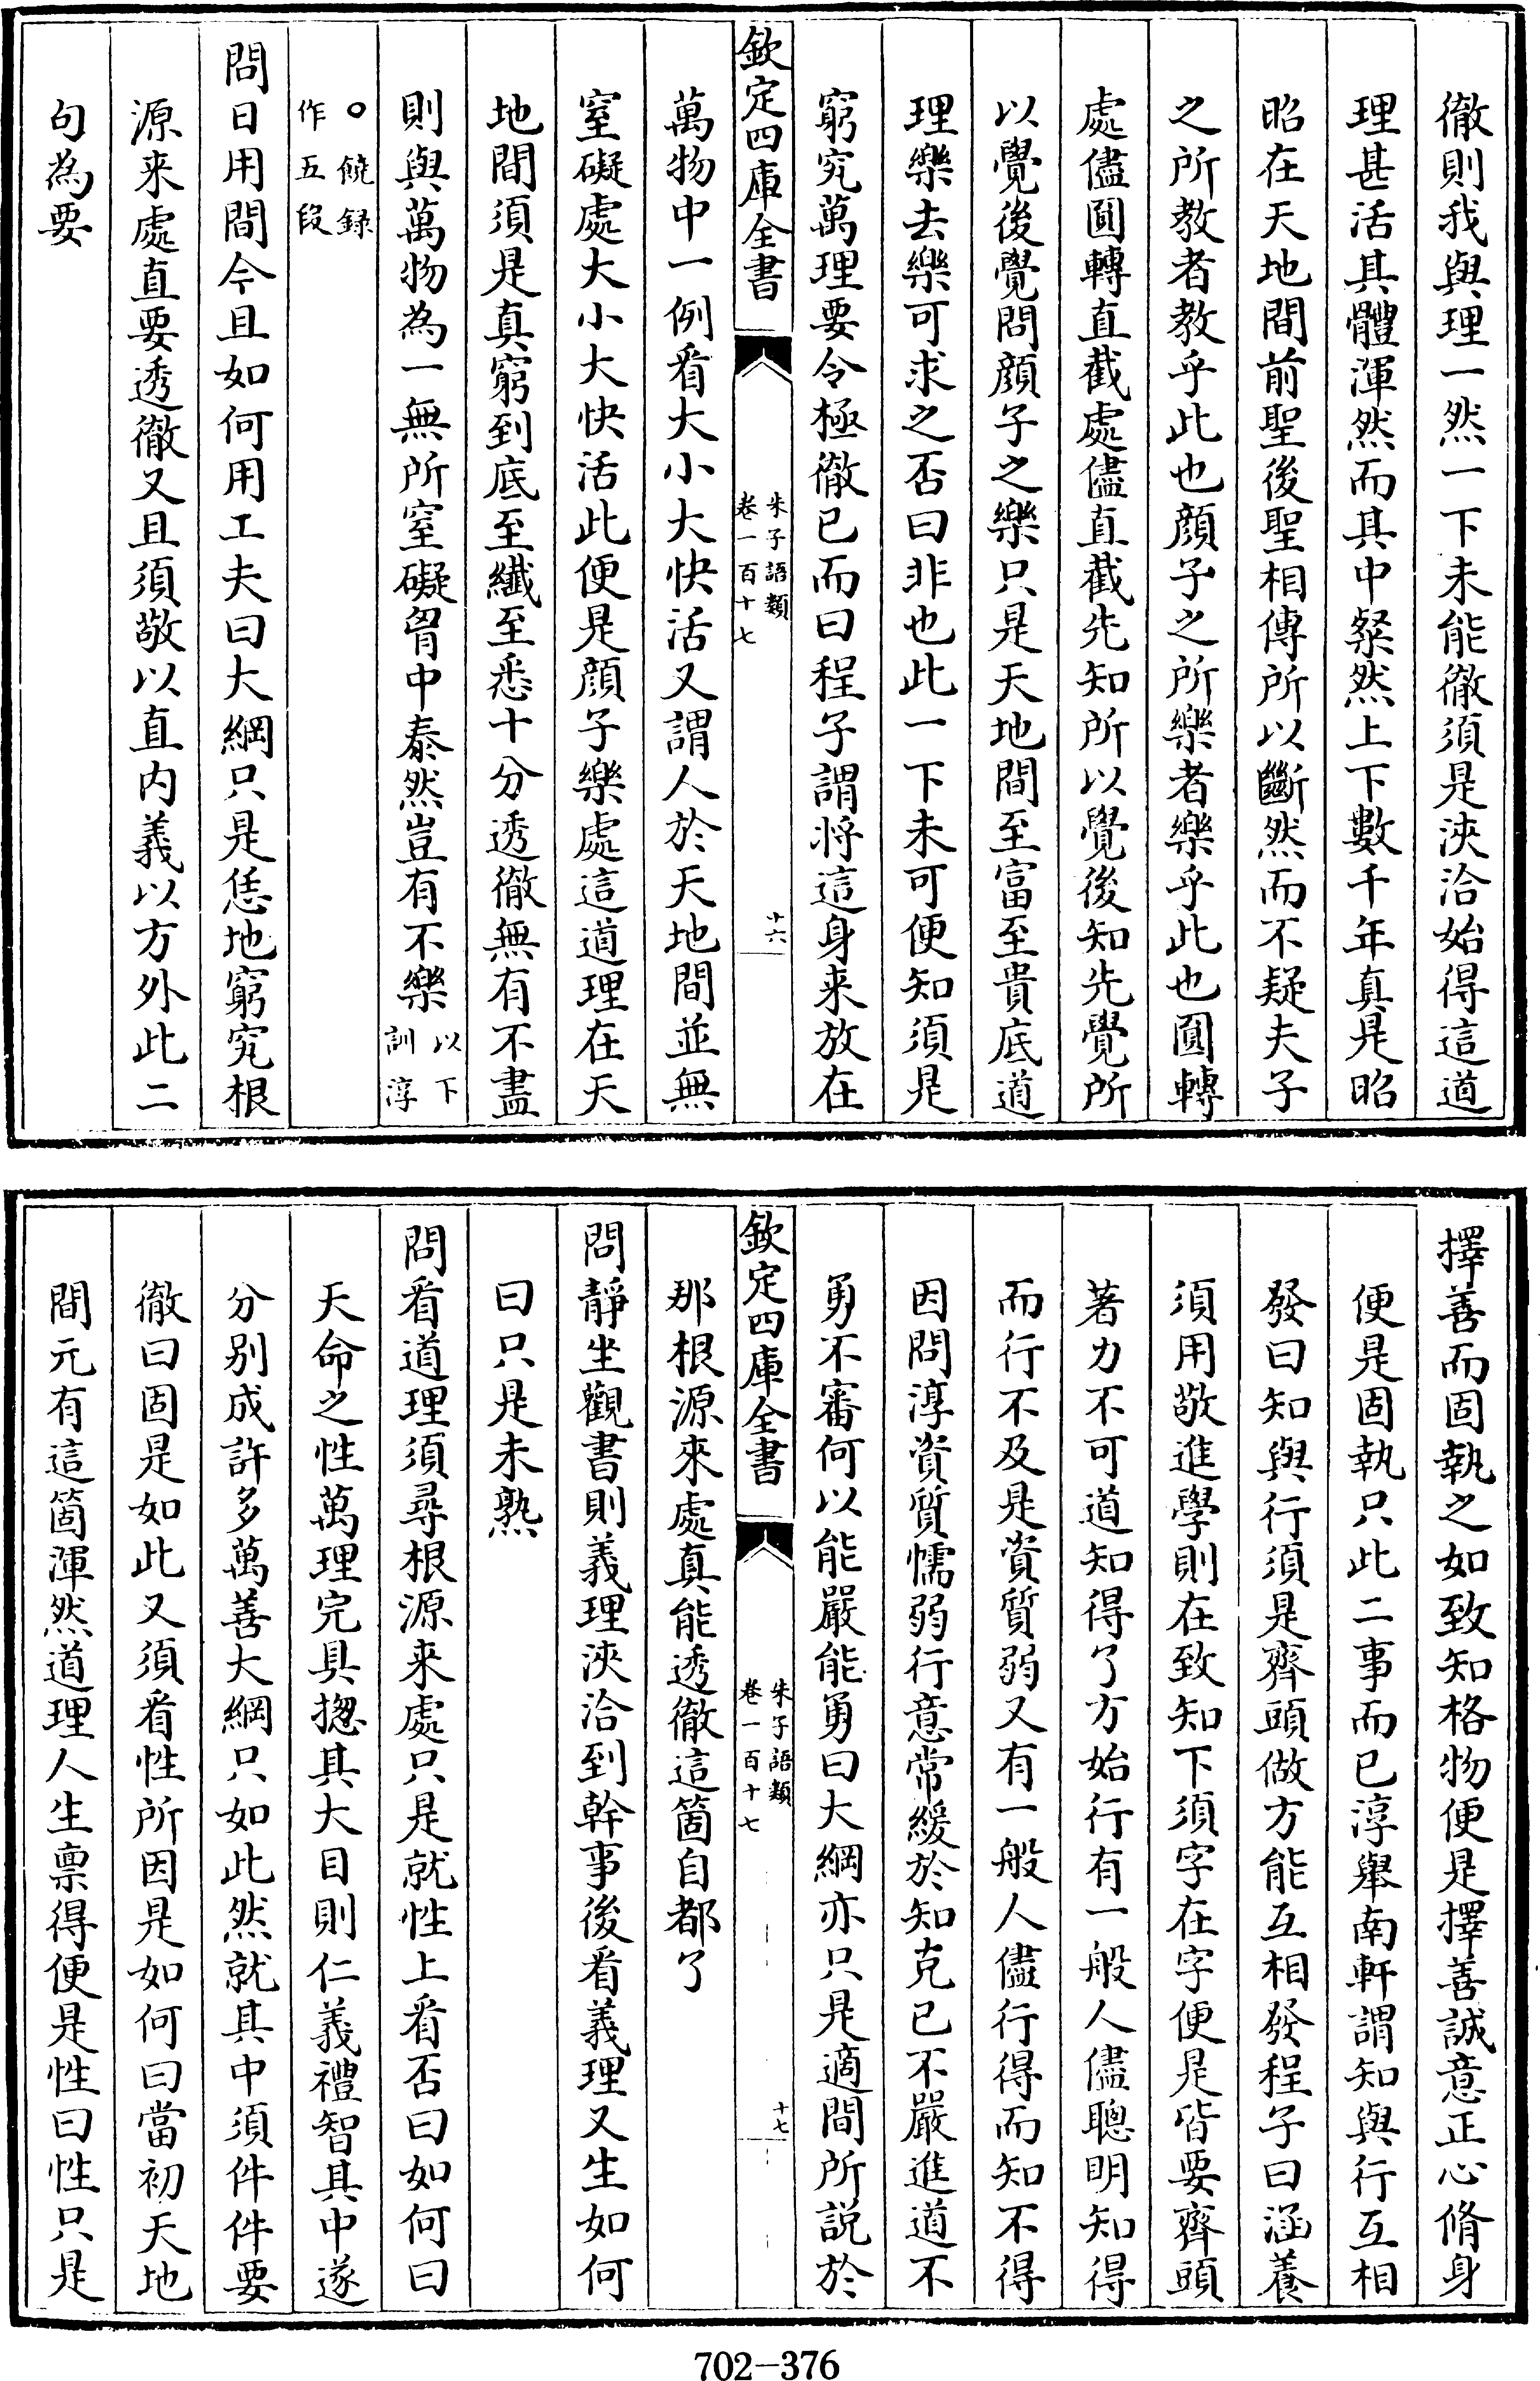 徹則我與理一然一下未能徹須是浹洽始得這道
理甚活其體渾然而其中粲然上下數千年真是昭
昭在天地間前聖後聖相傳所以斷然而不疑夫子
之所教者教乎此也顔子之所樂者樂乎此也圓轉
處儘圓轉直截處儘直截先知所以覺後知先覺所
以覺後覺問顔子之樂只是天地間至富至貴底道
理樂去樂可求之否曰非也此一下未可便知須是
窮究萬理要令極徹已而曰程子謂將這身来放在
欽定四庫全書
朱子語類
卷一百十七
十六
萬物中一例看大小大快活又謂人於天地間並無
窒礙處大小大快活此便是顔子樂處這道理在天
地間須是真窮到底至纎至悉十分透徹無有不盡
則與萬物為一無所窒礙胷中泰然豈有不樂
以下
訓淳
○饒録
作五段
問日用間今且如何用工夫曰大綱只是恁地窮究根
源来處直要透徹又且須敬以直内義以方外此二
句為要
擇善而固執之如致知格物便是擇善誠意正心脩身
便是固執只此二事而已淳舉南軒謂知與行互相
發曰知與行須是齊頭做方能互相發程子曰涵養
須用敬進學則在致知下須字在字便是皆要齊頭
著力不可道知得了方始行有一般人儘聰明知得
而行不及是資質弱又有一般人儘行得而知不得
因問淳資質懦弱行意常緩於知克已不嚴進道不
勇不審何以能嚴能勇曰大綱亦只是適間所説於
欽定四庫全書
朱子語類
卷一百十七
十七
那根源來處真能透徹這箇自都了
問靜坐觀書則義理浹洽到幹事後看義理又生如何
曰只是未熟
問看道理須尋根源来處只是就性上看否曰如何曰
天命之性萬理完具揔其大目則仁義禮智其中遂
分别成許多萬善大綱只如此然就其中須件件要
徹曰固是如此又須看性所因是如何曰當初天地
間元有這箇渾然道理人生禀得便是性曰性只是
702-376